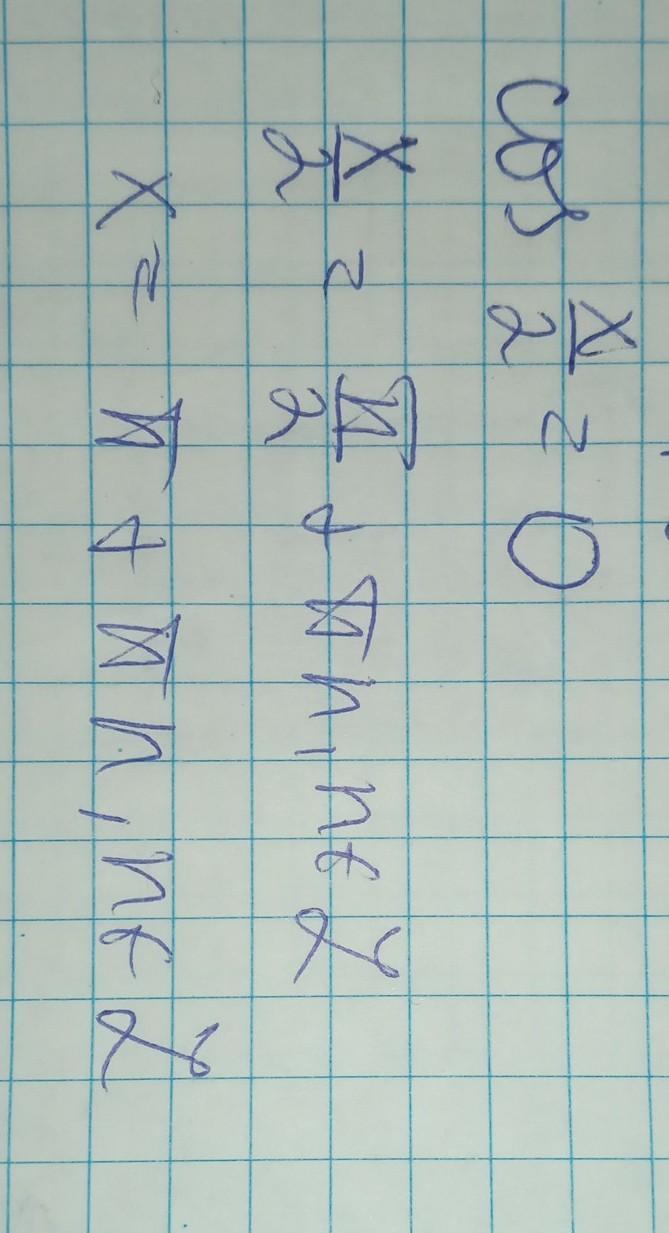 cos x/2 = 0
x/2 = π/2 + πn, n ∈ Z
x = π + πn, n ∈ Z